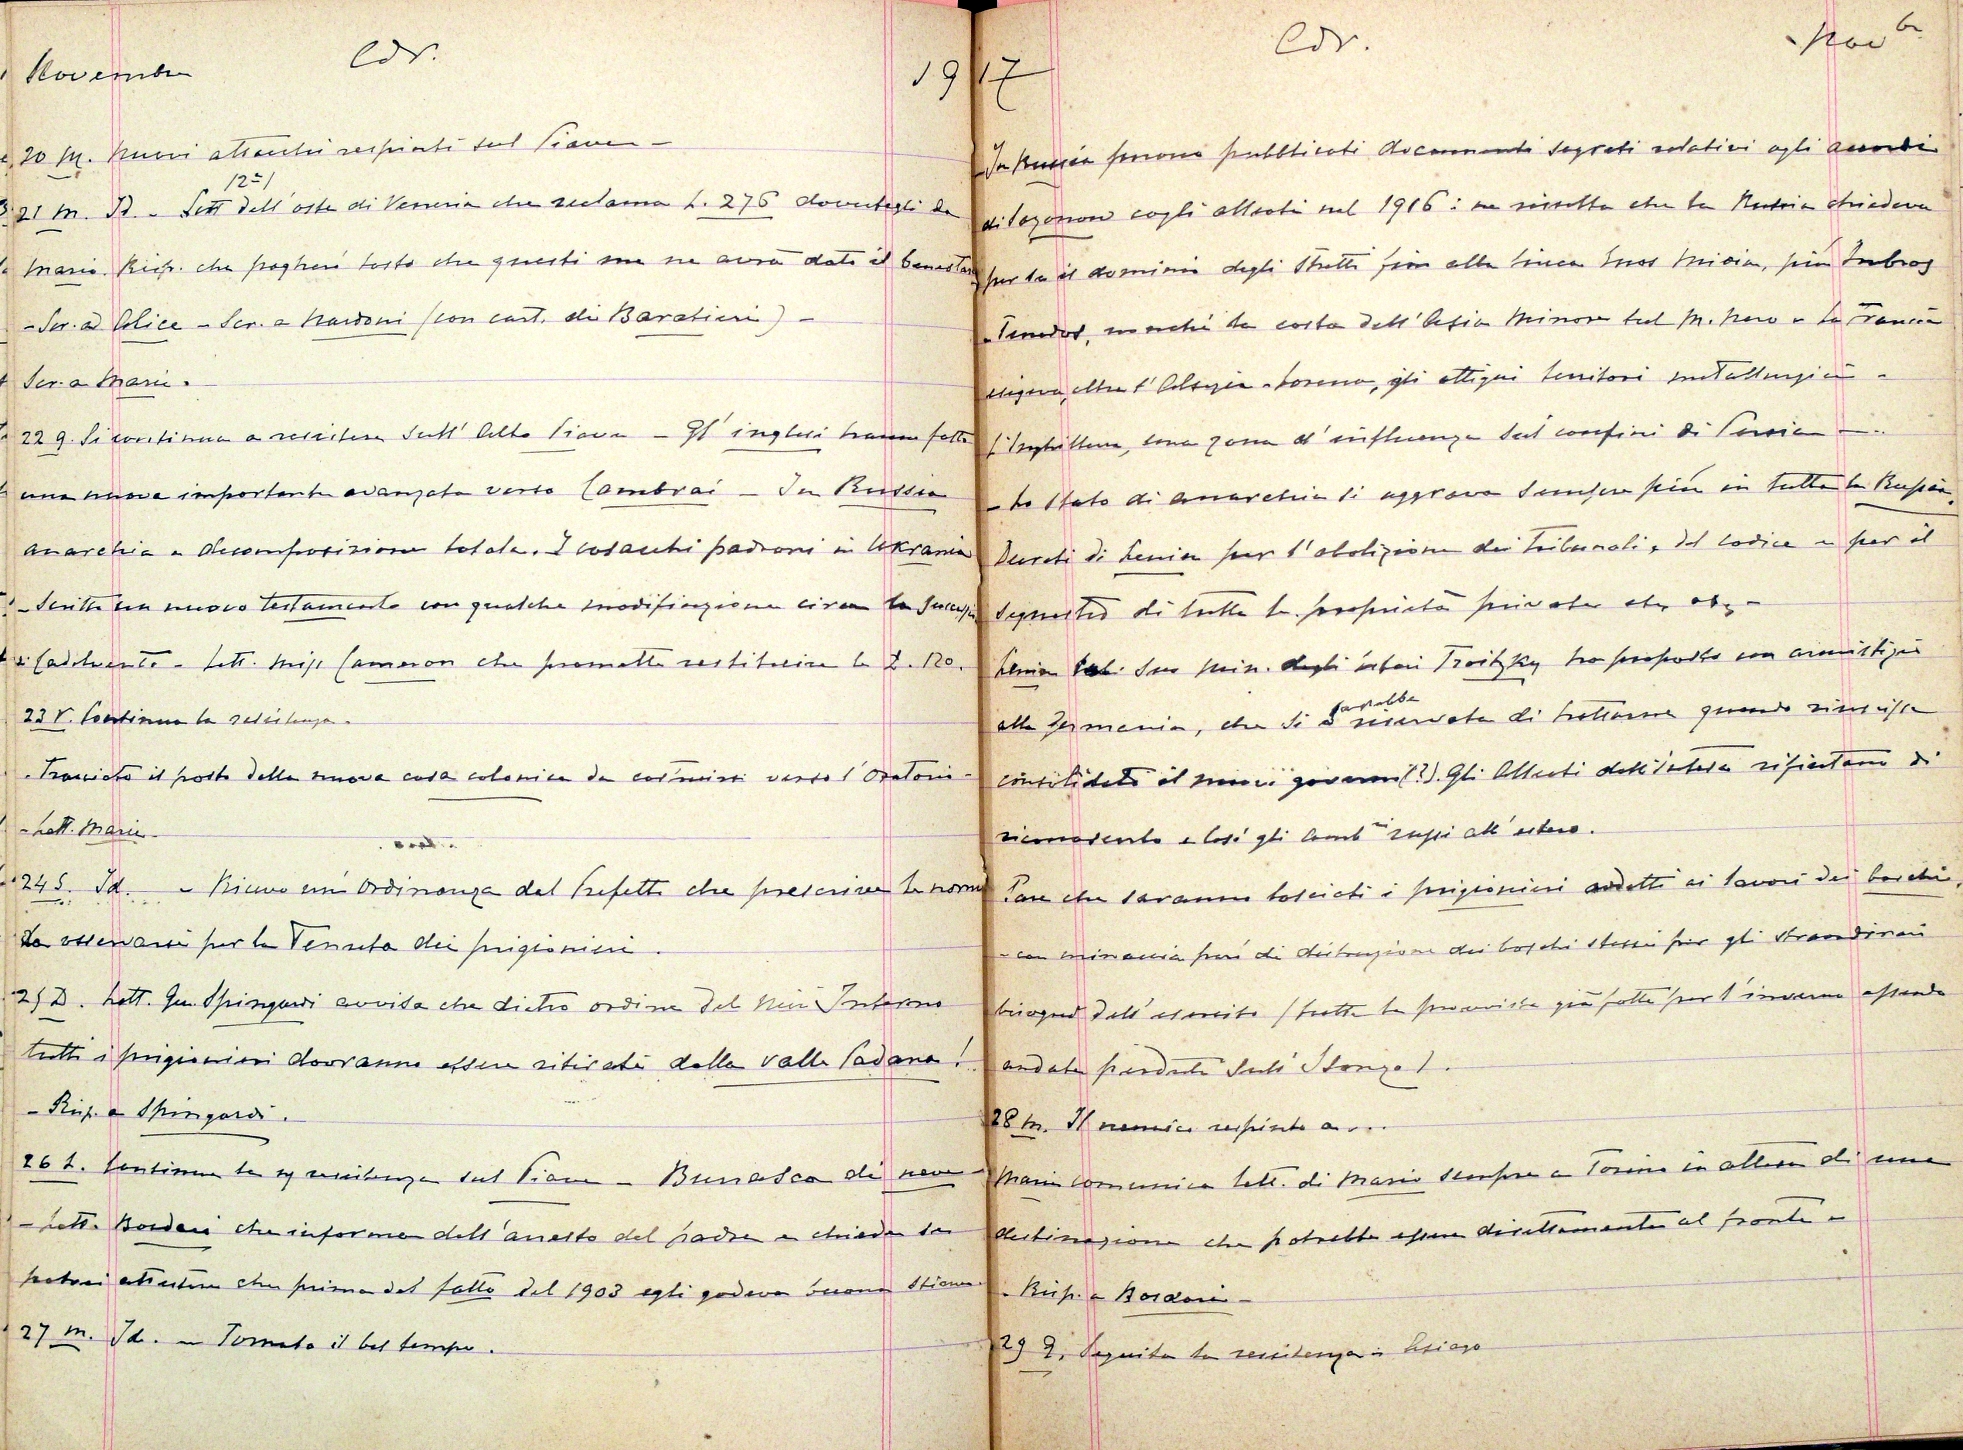 Novembre
Cdr.
1917
20 M. Nuovi attacchi respinti sul Piave -
121
21 M. Id. - Lett dell'oste di Veneria che reclama L. 276 dovutegli da
Mario. Risp. che pagherò tosto che questi me ne avrà dato il benestare
- Scr. ad Alice - Scr. a Nardoni (con cart. di Baratieri) -
Scr. a Marie.
22 g. Si continua a resistere sull'Alto Piave - Gl'inglesi hanno fatto
una nuova importante avanzata verso Cambrai - In Russia
anarchia e decomposizione totale. I cosacchi padroni in Ukrania
- Scritto un nuovo testamento con qualche modificazione circa la
- Lett. Miss Cameron che promette restituire le L. 120.
23 V. Continua la resistenza -
- Tracciato il posto della nuova casa colonica da costruirsi verso l'Oratorio -
- Lett. Marie -
24 S. Id. - Ricevo un'Ordinanza del Prefetto che prescrive le norme
da osservarsi per la Tenuta dei prigionieri.
25 D. Lett. Gen. Spingardi avvisa che dietro ordine del Min Interno
tutti i prigionieri dovranno essere ritirati dalla Valle Padana!
- Risp. a Spingardi.
26 L. Continua la resistenza sul Piave - Burrasca di neve
- Lett. Bordari che informa dell'arresto del padre e chiede se
potrei attestare che prima del fatto del 1903 egli godeva buona
27 M. Id. - Tornato il bel tempo.
Cdr.
Nov br
In Russia furono pubblicati documenti segreti relativi agli accordi
di Sazonow cogli alleati nel 1916: ne risulta che la Russia chiedeva
per se il dominio degli Stretti fino alla linea Enos Midia, più Imbros
e Tenedos, nonchè la costa dell'Asia Minore sul M. Nero e la Francia
esigeva, oltre l'Alsazia-Lorena, gli attigui territori metallurgici -
L'Inghilterra, una zona d'influenza sul confini di Persia -
- Lo Stato di anarchia si aggrava sempre più in tutta la Russia.
Decreti di Lenin per l'abolizione dei Tribunali, del codice e per il
sequestro di tutte le proprietà private etc etc -
Lenin suo Min. degli esteri Troitzky ha proposto un armistizio
sarebbe
alla Germania, che si è riservata di trattarne quando riuscisse
consolidato il nuovo governo (?). Gli Alleati dell'intesa rifiutano di
riconoscerlo e così gli amb ri russi all'estero.
Pare che saranno lasciati i prigionieri addetti ai lavori dei boschi,
- con minaccia però di distruzione dei boschi stessi per gli straordinari
bisogni dell'esercito (tutte le provviste già fatte per l'inverno essendo
andate perdute sull'Isonzo).
28 M. Il nemico respinto a...
Marie comunica lett. di Mario sempre a Torino in attesa di una
destinazione che potrebbe essere direttamente al fronte -
- Risp. a Bordari -
29 g. Seguita la resistenza Asiago